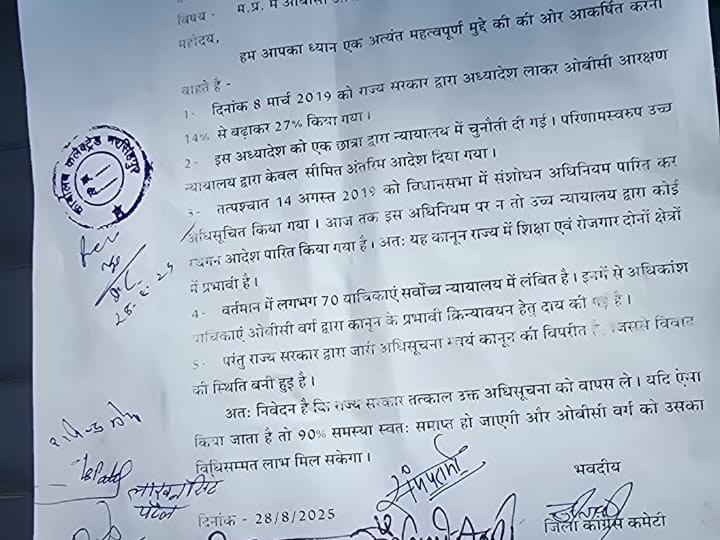 विषय - म.प्र. में ओबीसी
महोदय,
हम आपका ध्यान एक अत्यंत महत्वपूर्ण मुद्दे की की ओर आकर्षित करना
चाहते है -
1- दिनांक 8 मार्च 2019 को राज्य सरकार द्वारा अध्यादेश लाकर ओबीसी आरक्षण
14% से बढ़ाकर 27% किया गया।
2- इस अध्यादेश को एक छात्रा द्वारा न्यायालय में चुनौती दी गई। परिणामस्वरुप उच्च
न्यायालय द्वारा केवल सीमित अंतरिम आदेश दिया गया।
3- तत्पश्चात 14 अगस्त 2019 को विधानसभा में संशोधन अधिनियम पारित कर
अधिसूचित किया गया। आज तक इस अधिनियम पर न तो उच्च न्यायालय द्वारा कोई
स्थगन आदेश पारित किया गया है। अतः यह कानून राज्य में शिक्षा एवं रोजगार दोनों क्षेत्रों
में प्रभावी है।
4- वर्तमान में लगभग 70 याचिकाएं सर्वोच्च न्यायालय में लंबित है। इनमें से अधिकांश
याचिकाएं ओबीसी वर्ग द्वारा कानून के प्रभावी क्रिन्यावयन हेतु दाय की गई है।
5- परंतु राज्य सरकार द्वारा जारी अधिसूचना स्वयं कानून की विपरीत है, जिससे विवाद
की स्थिति बनी हुइ है।
अतः निवेदन है कि राज्य सरकार तत्काल उक्त अधिसूचना को वापस ले। यदि ऐसा
किया जाता है तो 90% समस्या स्वतः समाप्त हो जाएगी और ओबीसी वर्ग को उसका
विधिसम्मत लाभ मिल सकेगा।
भवदीय
दिनांक - 28/8/2025
जिला कांग्रेस कमेटी
कार्यालय कलेक्ट्रेड नरसिंहपुर
लाखन सिंह
पटेल